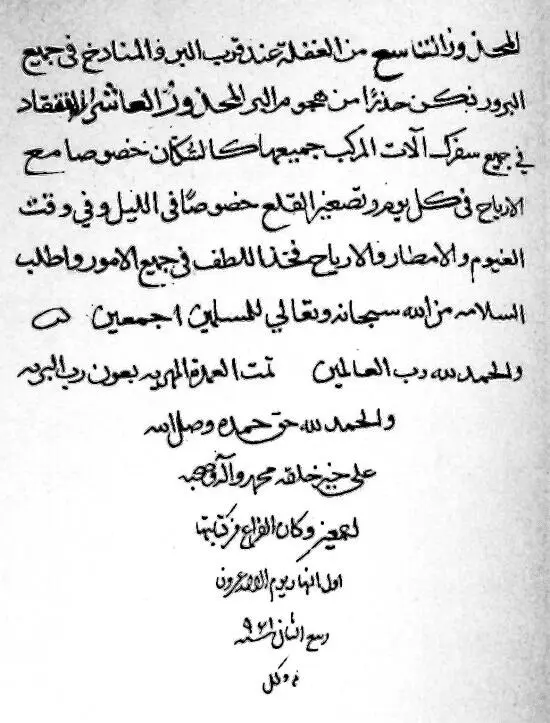 المحذور التاسع من الغفلة عند قرب البر والمنادخ في جميع
البرور نكن حذرًا من هجوم البر المحذورُ العاشر التفقاد
في جميع سفرك آلات المركب جميعها كالسُّكّان خصوصا مع
الارياح في كل يوم وتصغير القلع خصوصًا في الليل وفي وقت
الغيوم والامطار والارياح فخذ اللطف في جميع الامور واطلب
السلامه من الله سبحانه وتعالي للمسلمين اجمعين
والحمد لله رب العالمين تمت العمدة المهريه بعون رب البريه
والحمد لله حق حمده وصلى الله
على خير خلقه محمد وآله وصحبه
اجمعين وكان الفراغ من كتابتها
اول النهار يوم الاحد
ربيع الثاني سنه ٩٦١